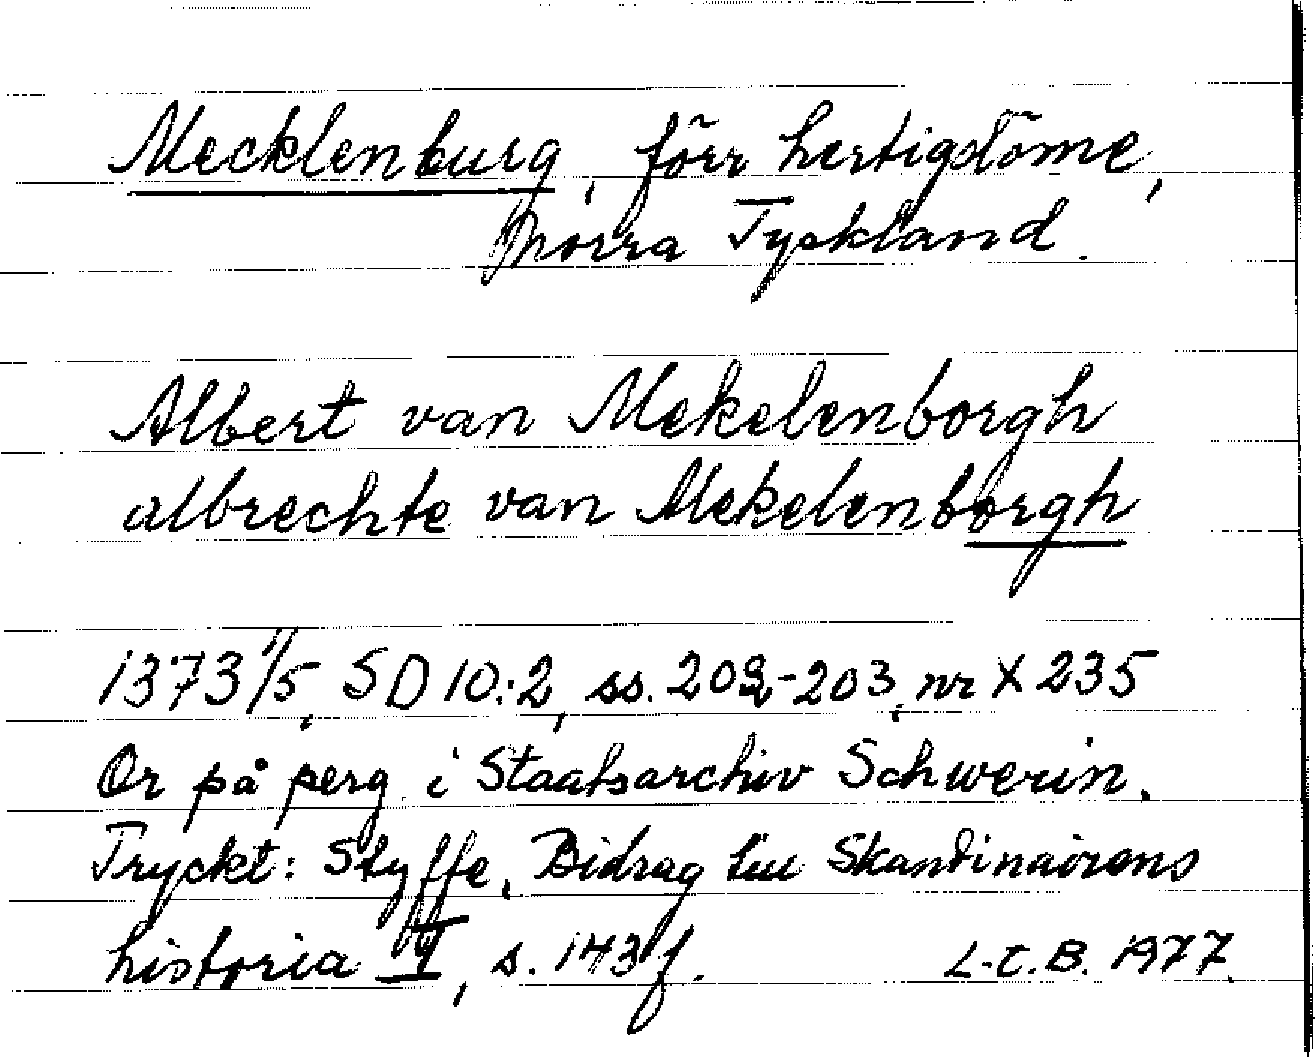 Mecklenburg, förr hertigdöme,
norra Tyskland.
Albert van Mekelenborgh
albrechte van Mekelenborgh
1373 1/5, SD 10:2, ss. 202-203, nr X 235
Or på perg. i Staatsarchiv Schwerin.
Tryckt: Styffe, Bidrag till Skandinaviens
historia I, s. 143 f. L.C.B. 1977.